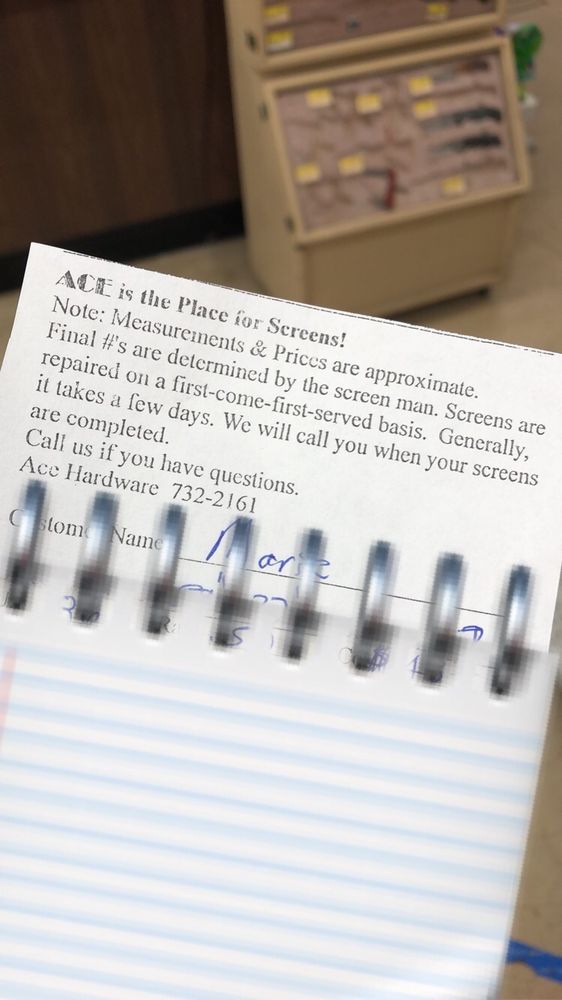 ACE is the Place for Screens!
Note: Measurements & Prices are approximate.
Final #'s are determined by the screen man. Screens are
repaired on a first-come-first-served basis. Generally,
it takes a few days. We will call you when your screens
are completed.
Call us if you have questions.
Ace Hardware 732-2161
Name